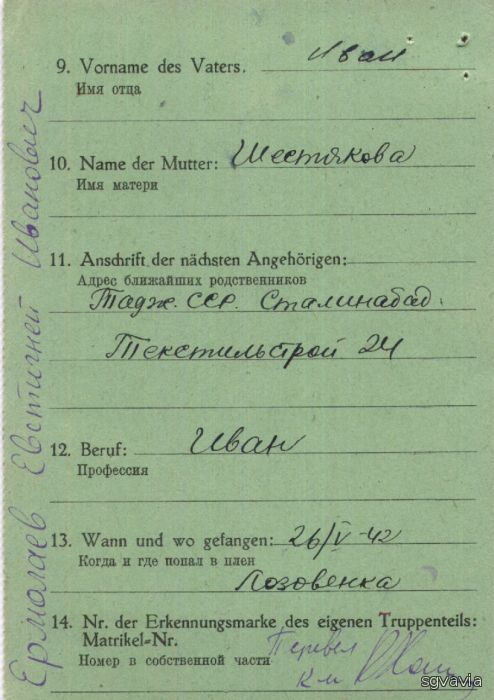 9. Vorname des Vaters. Иван
Имя отца
10. Name der Mutter: Шестякова
Имя матери
11. Anschrift der nächsten Angehörigen:
Адрес ближайших родственников
Тадж. ССР. Сталинабад.
Текстильстрой 24
12. Beruf: Иван
Профессия
13. Wann und wo gefangen: 26/V-42
Когда и где попал в плен
Лозовенка
14. Nr. der Erkennungsmarke des eigenen Truppenteils:
Matrikel-Nr.
Номер в собственной части
Перевел
Ермолаев Евстигней Иванович
sgvavia